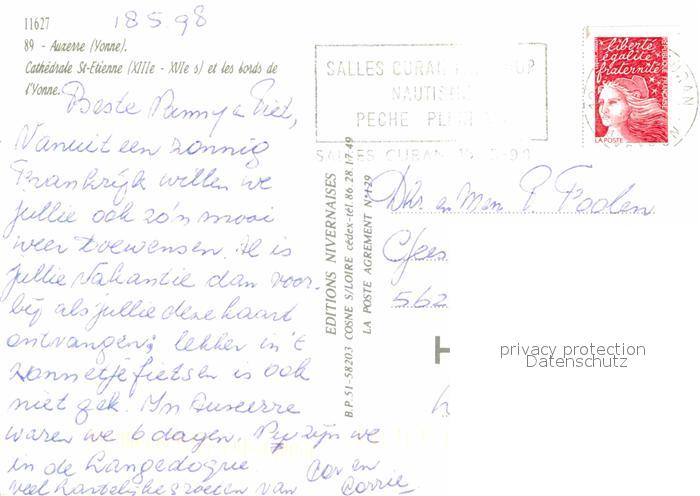 11627
18 5 98
89 - Auxerre (Yonne).
Cathédrale St-Etienne (XIIIe - XVIe s) et les bords de
l'Yonne.
Beste Nanny en Piet,
Vanuit een zonnig
Frankrijk willen we
jullie ook zo'n mooi
weer toewensen. Al is
jullie vakantie dan voor-
bij als jullie deze kaart
ontvangen; lekker in 't
zonnetje fietsen is ook
niet gek. In Auxerre
waren we 6 dagen. Nu zijn we
in de Langedogne.
veel hartelijke groeten van
Cor en
Corrie
EDITIONS NIVERNAISES
B.P. 51-58203 COSNE S/LOIRE cédex-tél 86.28.17.49
LA POSTE AGREMENT N°129
SALLES CURAN
NAUTISME
PECHE
SALLES CURAN
liberté
égalité
fraternité
LA POSTE
Dhr. en Mevr. P.
562
privacy protection
Datenschutz